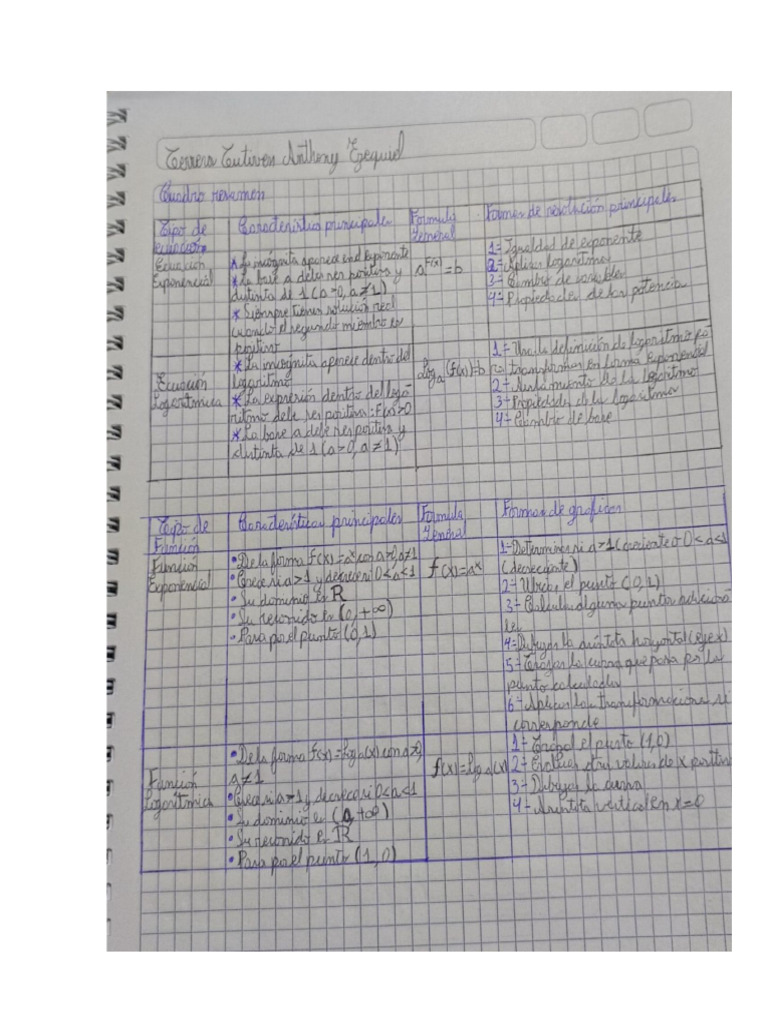 Cuadro resumen
Tipo de ecuación
Características principales
Formula General
Formas de resolución principales
Ecuación Exponencial
* La incógnita aparece en el exponente
* La base a debe ser positiva y
distinta de 1 (a>0, a≠1)
* Siempre tienen solución real
cuando el segundo miembro es
positivo
a^F(x) = b
1- Igualdad de exponente
2- Aplicar logaritmos
3- Cambio de variable
4- Propiedades de las potencia
Ecuación
Logarítmica
* La incógnita aparece dentro del
logaritmo
* La expresión dentro del loga
ritmo debe ser positiva: F(x)>0
* La base a debe ser positiva y
distinta de 1 (a>0, a≠1)
log a (f(x))=b
1- Usa la definición de logaritmo pa
ra transformar en forma exponencial
2- de los logaritmo
3- Propiedades de los logaritmo
4- Cambio de base
Tipo de
Función
Características principales
Formula
General
Formas de graficar
Función
Exponencial
• De la forma f(x)=a^x con a>0, a≠1
• Crece si a>1 y decrece si 0<a<1
• Su dominio es R
• Su recorrido es (0,+∞)
• Pasa por el punto (0,1)
f(x)=a^x
1- Determinar si a>1 (creciente o 0<a<1
(decreciente)
2- el punto (0,1)
3- Calcula alguna puntos adiciona
les
4- Dibujar la asíntota horizontal (eje x)
5- Trazar la curva que pasa por los
punto calculados
6- Aplicar las transformaciones si
corresponde
Función
Logarítmica
• De la forma f(x)=log a(x) con a>0,
a≠1
• Crece si a>1 y decrece si 0<a<1
• Su dominio es (0,+∞)
• Su recorrido es R
• Pasa por el punto (1,0)
f(x)=log a(x)
1- el punto (1,0)
2- Evaluar otros valores de x positivos
3- Dibujar la curva
4- Asíntota vertical en x=0